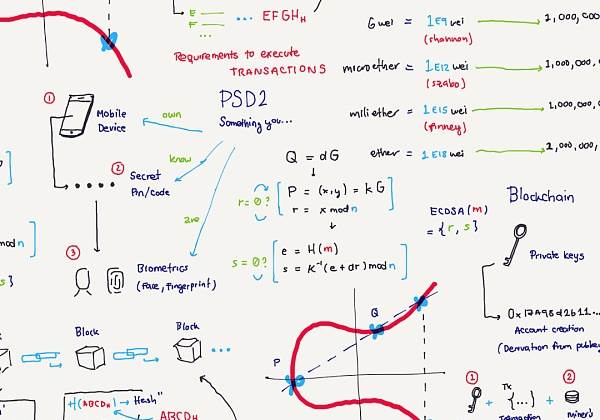 E
F
... EFGH H
Requirements to execute
TRANSACTIONS
Gwei = 1E9 wei
(shannon)
microether = 1E12 wei
(szabo)
1,000,000,
milliether = 1E15 wei
(finney)
1,000,000,
ether = 1E18 wei
1,000,000,
PSD2
Something you...
own
know
are
1
Mobile
Device
2
Secret
Pin/code
3
Biometrics
(Face, Fingerprint)
Q = dG
r = 0?
P = (x,y) = kG
r = x mod n
s = 0?
e = H(m)
s = K⁻¹(e + dr) mod n
ECDSA(m)
= {r, s}
Blockchain
Private keys
Account creation
(Derivation from
mod n
s}
Block
Block
...
H(ABCD H) → Hash"
ABCD H
P
Q
1
Tx
{...}
2
+
Transaction
miners